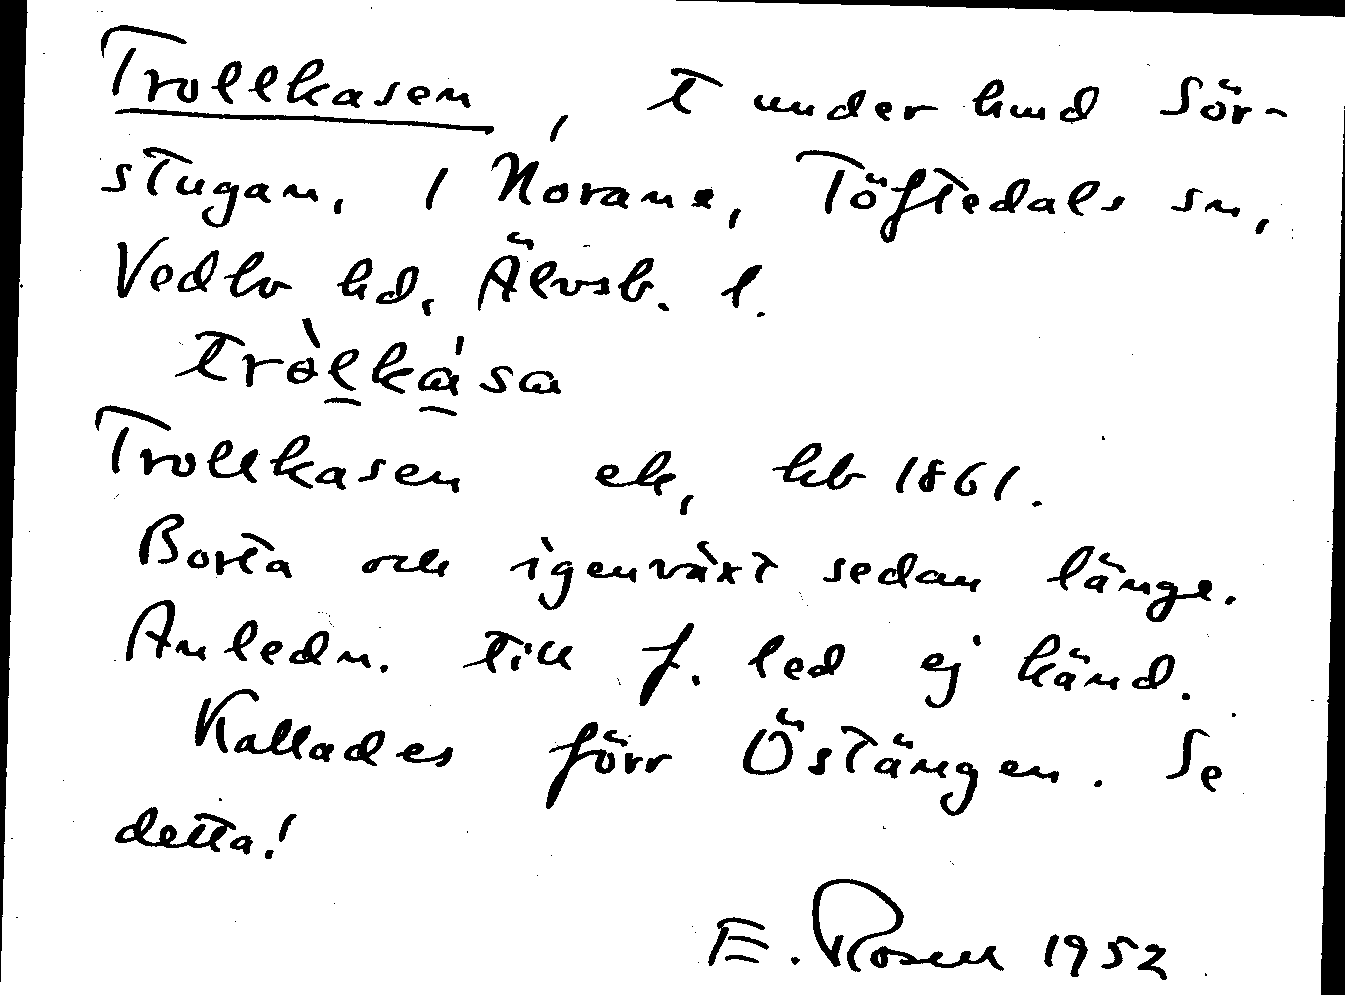 Trollkasen, t under hmd Sör-
stugan, 1 Norane, Töftedals sn,
Vedbo hd, Älvsb. l.
tròlká̀sa
Trollkasen ek, hb 1861.
Borta och igenväxt sedan länge.
Anledn. till f. led ej känd.
Kallades förr Östängen. Se
detta!
E. Rosell 1952